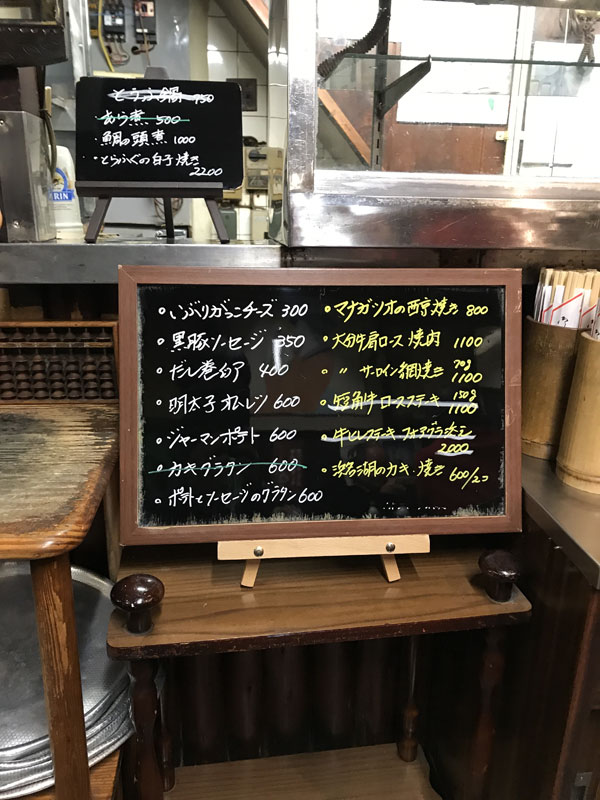 とうふ鍋 750
あら煮 500
・鯛の頭煮 1000
・とらふぐの白子焼き
2200
RIN
・いぶりがっこチーズ 300
・黒豚ソーセージ 350
・だし巻 400
・明太子オムレツ 600
・ジャーマンポテト 600
・カキグラタン 600
・ポテトとソーセージのグラタン 600
・マナガツオの西京焼き 800
・大分牛肩ロース焼肉 1100
・〃 サーロイン網焼き 70g
1100
・短角牛ロースステーキ 150g
1100
・牛ヒレステーキ フォアグラ
2000
・浜名湖のカキ 焼き 600/2コ